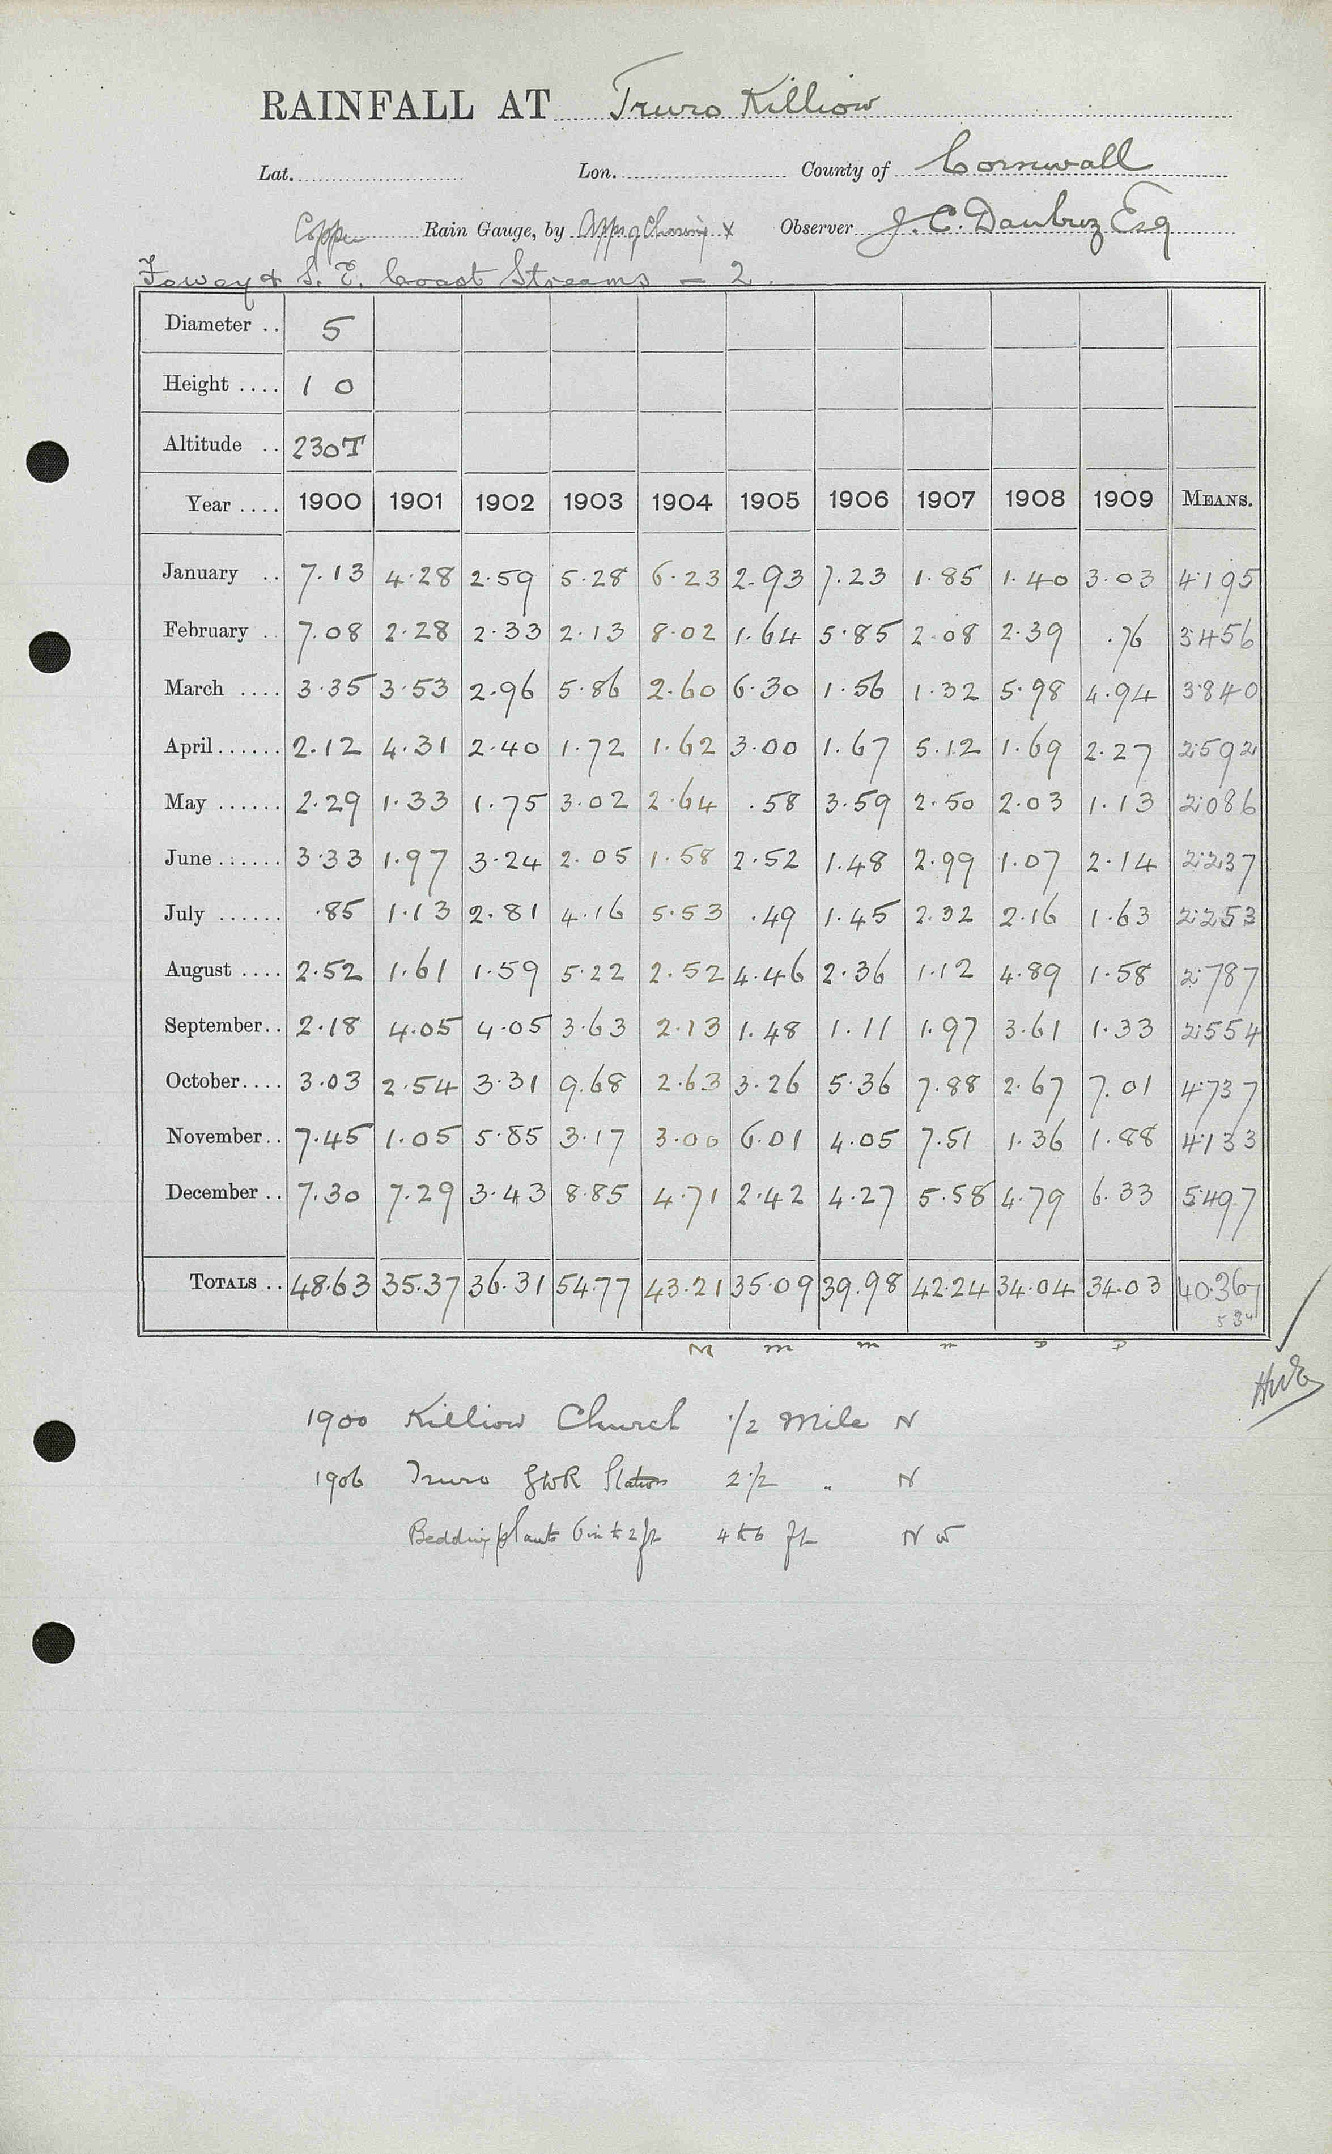 RAINFALL AT Truro Killiow
Lat. Lon. County of Cornwall
Copper Rain Gauge, by Observer J. C. Daubuz Esq
Fowey & S. E. Coast Streams - 2
Diameter .. 5
Height .... 1 0
Altitude .. 230T
Year .... 1900 1901 1902 1903 1904 1905 1906 1907 1908 1909 MEANS.
January .. 7.13 4.28 2.59 5.28 6.23 2.93 7.23 1.85 1.40 3.03 4.195
February .. 7.08 2.28 2.33 2.13 8.02 1.64 5.85 2.08 2.39 .76 3.456
March .... 3.35 3.53 2.96 5.86 2.60 6.30 1.56 1.32 5.98 4.94 3.840
April...... 2.12 4.31 2.40 1.72 1.62 3.00 1.67 5.12 1.69 2.27 2.592
May ...... 2.29 1.33 1.75 3.02 2.64 .58 3.59 2.50 2.03 1.13 2.086
June ...... 3.33 1.97 3.24 2.05 1.58 2.52 1.48 2.99 1.07 2.14 2.237
July ...... .85 1.13 2.81 4.16 5.53 .49 1.45 2.32 2.16 1.63 2.253
August .... 2.52 1.61 1.59 5.22 2.52 4.46 2.36 1.12 4.89 1.58 2.787
September.. 2.18 4.05 4.05 3.63 2.13 1.48 1.11 1.97 3.61 1.33 2.554
October.... 3.03 2.54 3.31 9.68 2.63 3.26 5.36 7.88 2.67 7.01 4.737
November.. 7.45 1.05 5.85 3.17 3.00 6.01 4.05 7.51 1.36 1.88 4.133
December .. 7.30 7.29 3.43 8.85 4.71 2.42 4.27 5.58 4.79 6.33 5.497
TOTALS .. 48.63 35.37 36.31 54.77 43.21 35.09 39.98 42.24 34.04 34.03 40.367
M m m m D D
1900 Killiow Church 1/2 Mile N
1906 Truro GWR Station 2 1/2 " N
Bedding plants 6 in to 2 ft 4 to 6 ft N W